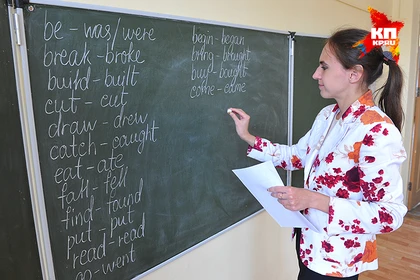 be - was/were
break - broke
build - built
cut - cut
draw - drew
catch - caught
eat - ate
fall - fell
find - found
put - put
read - read
go - went
begin - began
bring - brought
buy - bought
come - came
КП
КРЯЦ